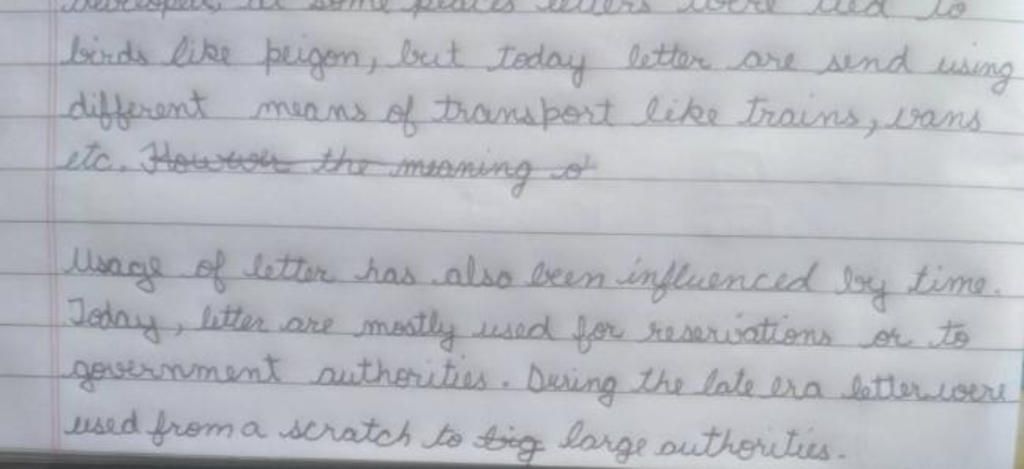 developed, at some places letters were tied to
birds like peigon, but today letter are send using
different means of transport like trains, vans
etc. However the meaning of
Usage of letter has also been influenced by time.
Today, letter are mostly used for reservations or to
government authorities. During the late era letter were
used from a scratch to big large authorities.